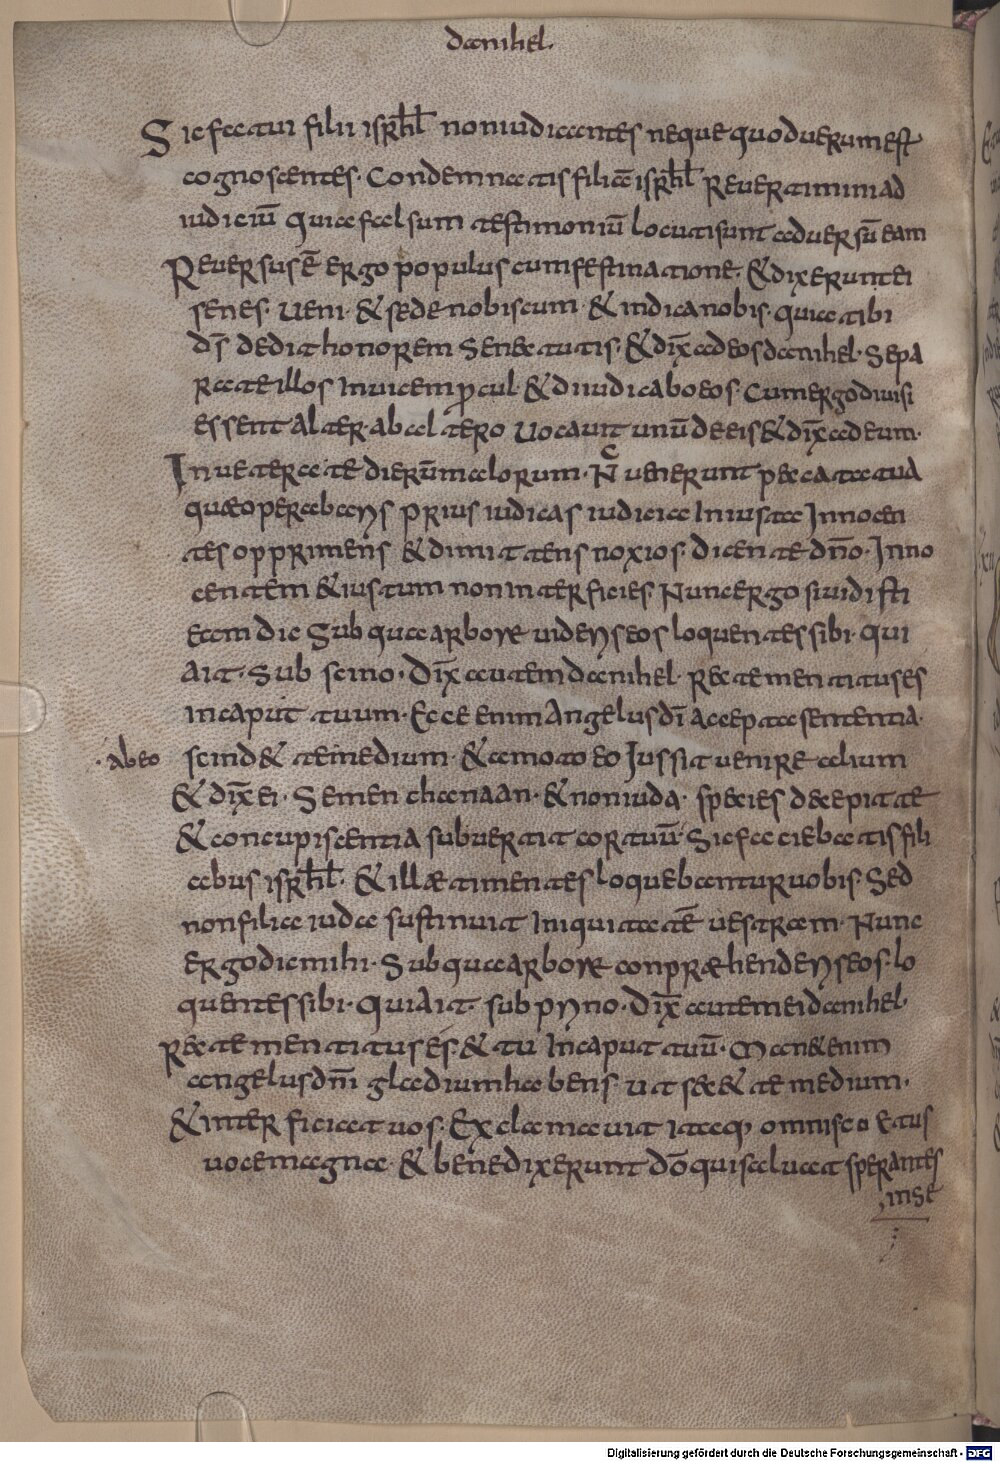 danihel.
Sic fatui filii isrl̄ non iudicantes neque quod uerum est
cognoscentes. Condemnatis filiā isrl̄ Reuertimini ad
iudiciū quia falsum testimoniū locuti sunt aduersū eam
Reuersus ē ergo populus cum festinatione. & dixerunt ei
senes. Ueni. & sede nobiscum. & indica nobis. quia tibi
dī dedit honorem senectutis. & dix̄ ad eos danihel. Sepa
rate illos inuicem ꝓcul. & diiudicabo eos. Cum ergo diuisi
essent alter ab altero uocauit unū de eis & dix̄ ad eum.
Inueterate dierū malorum. Nc̄ uenerunt peccata tua
quæ operabaris prius iudicas iudicia iniusta Innocen
tes opprimens & dimittens noxios. Dicente dn̄o. Inno
centem & iustum non interficies. Nunc ergo si uidisti
eam dic Sub qua arbore uideris eos loquentes sibi. Qui
ait. Sub scino. Dix̄ autem danihel. Recte mentitus es
in caput tuum. Ecce enim angelus dī accepta sententia.
.ab eo
scind& te medium. & amoto eo Iussit uenire alium
& dix̄ ei. Semen chanaan. & non iuda. species decepit te
& concupiscentia subuertit cor tuū. Sic faciebatis fili
abus isrl̄. & illæ timentes loquebantur uobis. Sed
non filia iuda sustinuit iniquitatē uestram. Nunc
ergo dic mihi. Sub qua arbore conpræhenderis eos. lo
quentes sibi. Qui ait. sub pryno. Dix̄ autem ei danihel.
Recte mentitus es. & tu in caput tuū. Man& enim
angelus dn̄i gladium habens. ut sec& te medium.
& interficiat uos. Exclamauit itaq; omnis coetus
uoce magna. & benedixerunt dō qui saluat sperantes
in se
Digitalisierung gefördert durch die Deutsche Forschungsgemeinschaft - DFG